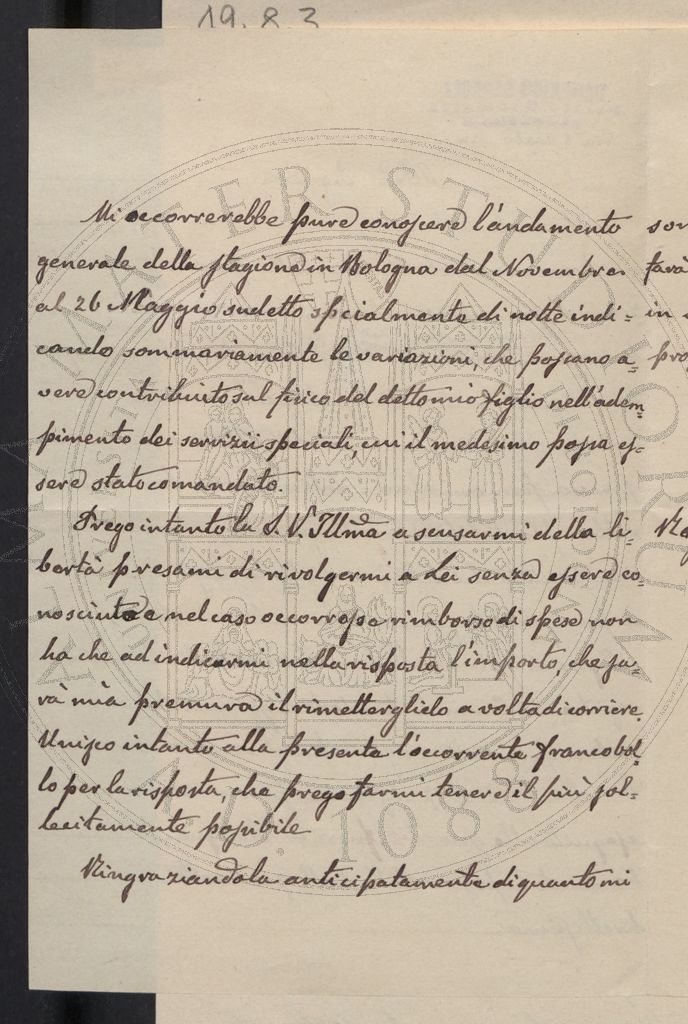 19.8.3
Mi occorrerebbe pure conoscere l'andamento
generale della stagione in Bologna dal Novembre
al 26 Maggio sudetto spcialmente di notte indi=
cando sommariamente le variazioni, che possano a=
vere contribuito sul fisico del detto mio figlio nell'adem=
pimento dei servizii speciali, cui il medesimo possa es=
sere stato comandato.
Prego intanto la S. V. Illma a scusarmi della li=
bertà presami di rivolgermi a Lei senza essere co=
nosciuto e nel caso occorresse rimborso di spese non
ha che ad indicarmi nella risposta l'importo, che sa=
rà mia premura il rimetterglielo a volta di corriere.
Unisco intanto alla presente l'occorrente francobol=
lo per la risposta, che prego farmi tenere il più sol=
lecitamente possibile
Ringraziandola anticipatamente di quanto mi
farà
in
ALMA MATER STUDIORUM
A.D. 1088